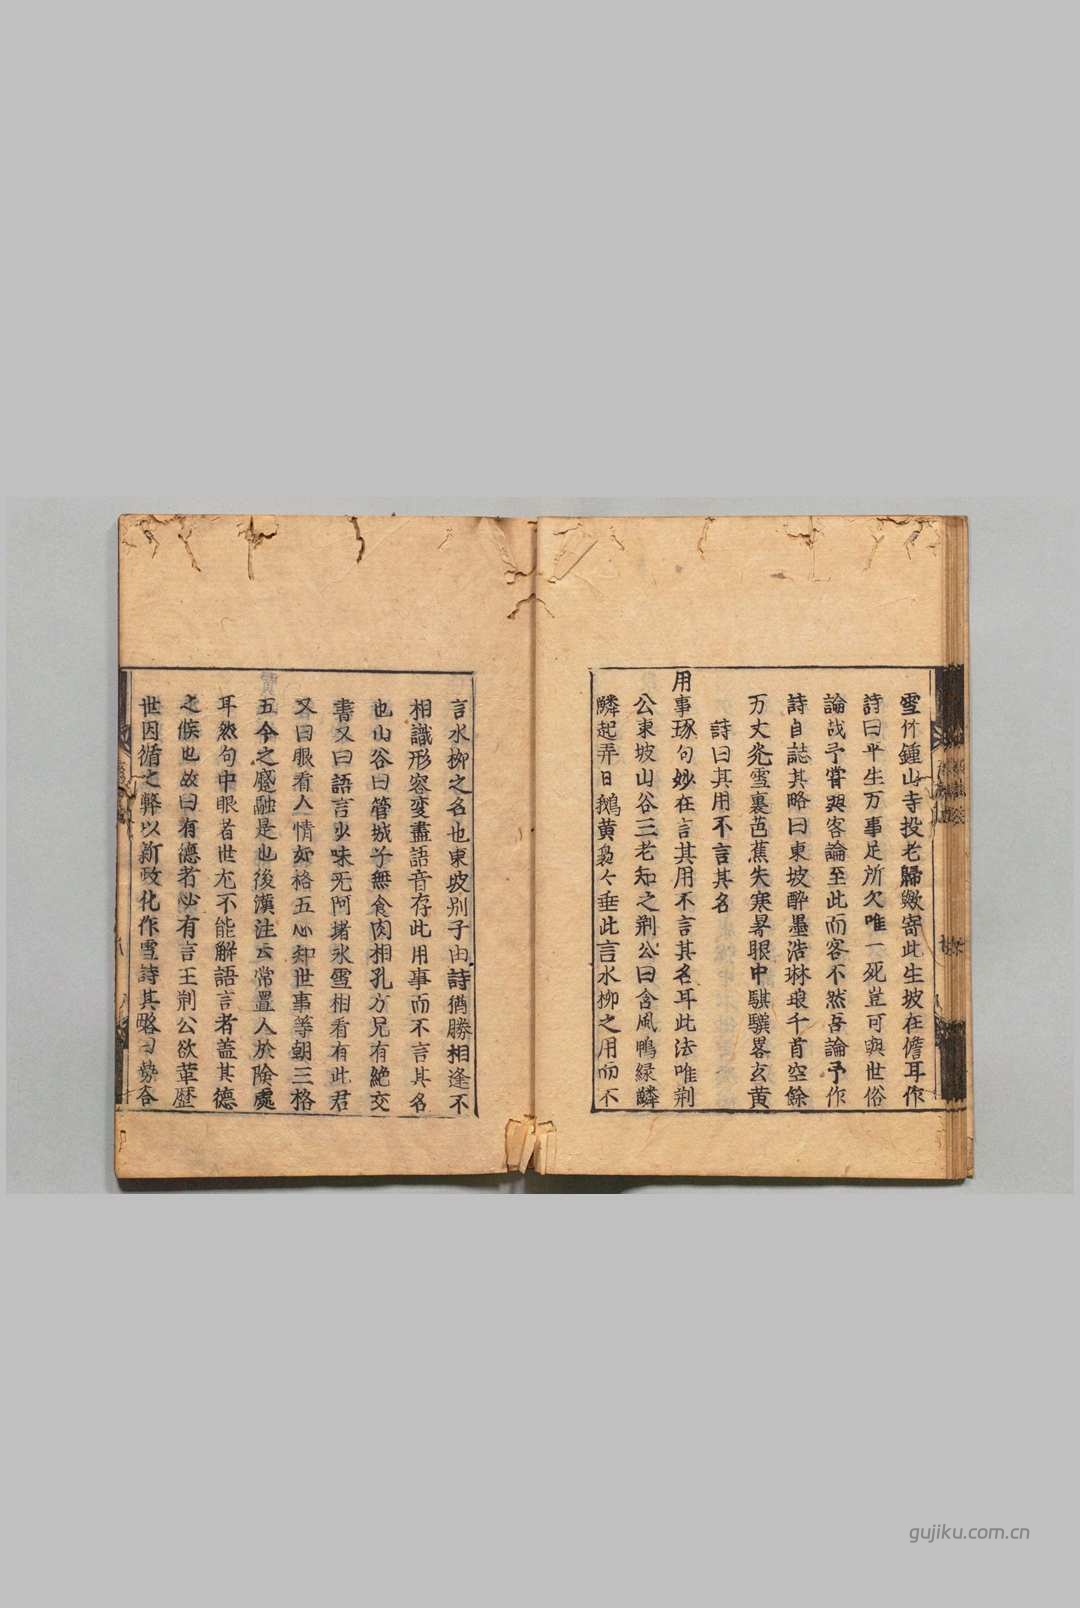 雪竹鍾山寺投老歸歟寄此生坡在儋耳作
詩曰平生万事足所欠唯一死豈可與世俗
論㦲予甞與客論至此而客不然吾論予作
詩自誌其略曰東坡醉墨浩琳琅千首空餘
万丈光雪裏芭蕉失寒暑眼中騏驥畧玄黃
詩曰其用不言其名
用事琢句妙在言其用不言其名耳此法唯荆
公東坡山谷三老知之荆公曰含風鴨緑鱗
鱗起弄日鵝黃裊々垂此言水柳之用而不
言水柳之名也東坡別子由詩猶勝相逢不
相識形容変盡語音存此用事而不言其名
也山谷曰管城子無食肉相孔方兄有絶交
書又曰語言少味无阿堵氷雪相看有此君
又曰眼看人情如格五心知世事等朝三格
五今之蹙融是也後漢注云常置人於険處
耳然句中眼者世尤不能解語言者盖其德
之候也故曰有德者必有言王荆公欲革歴
世因循之弊以新政化作雪詩其略曰勢合
gujiku.com.cn